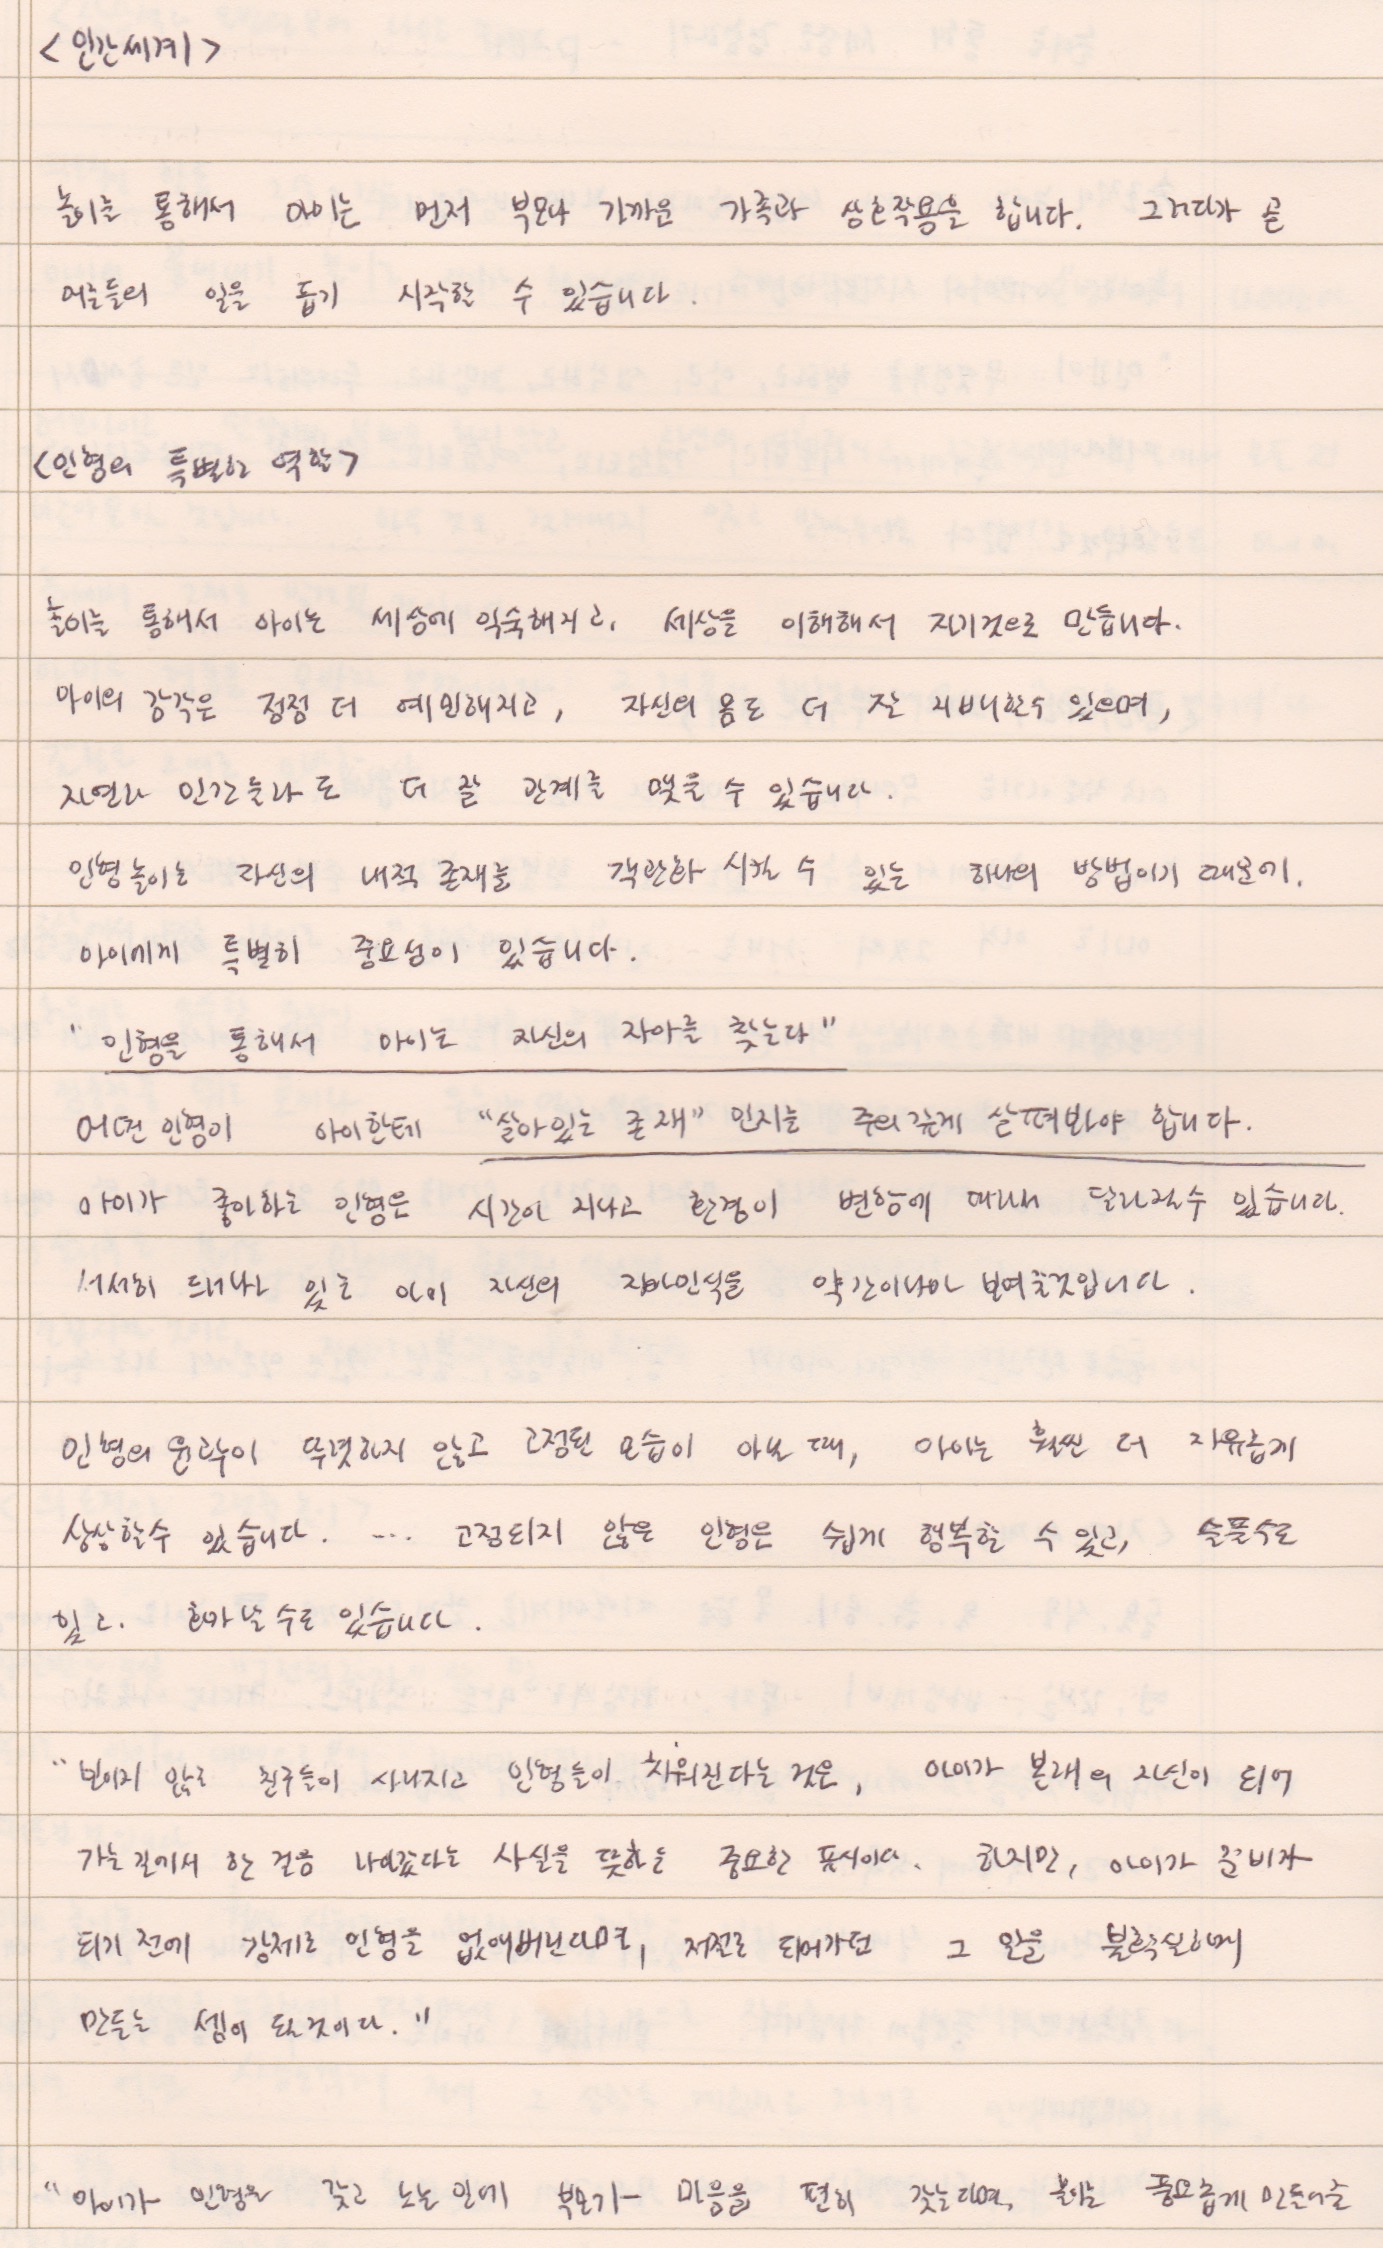 <인간세계>
놀이를 통해서 아이는 먼저 부모나 가까운 가족과 상호작용을 합니다. 그러다가 곧
어른들의 일을 돕기 시작할 수 있습니다.
<인형의 특별한 역할>
놀이를 통해서 아이는 세상에 익숙해지고, 세상을 이해해서 자기것으로 만듭니다.
아이의 감각은 점점 더 예민해지고, 자신의 몸도 더 잘 지배할수 있으며,
자연과 인간들과도 더 잘 관계를 맺을 수 있습니다.
인형놀이는 자신의 내적 존재를 객관화 시킬 수 있는 하나의 방법이기 때문에,
아이에게 특별히 중요성이 있습니다.
"인형을 통해서 아이는 자신의 자아를 찾는다"
어떤 인형이 아이한테 "살아있는 존재" 인지는 주의깊게 살펴봐야 합니다.
아이가 좋아하는 인형은 시간이 지나고 환경이 변함에 따라서 달라질수 있습니다.
서서히 드러나고 있는 아이 자신의 자아인식을 약간이나마 보여줄것입니다.
인형의 윤곽이 뚜렷하지 않고 고정된 모습이 아닐 때, 아이는 훨씬 더 자유롭게
상상할수 있습니다. .... 고정되지 않은 인형은 쉽게 행복할 수 있고, 슬플수도
있고. 화가날 수도 있습니다.
"보이지 않는 친구들이 사라지고 인형들이 치워진다는 것은, 아이가 본래의 자신이 되어
가는 길에서 한 걸음 나아갔다는 사실을 뜻하는 중요한 표시이다. 하지만, 아이가 준비가
되기 전에 강제로 인형을 없애버린다면, 저절로 되어가던 그 일을 불확실하게
만드는 셈이 될것이다."
"아이가 인형을 갖고 노는 일에 부모가 마음을 편히 갖는다면, 놀이는 풍요롭게 만들어줄